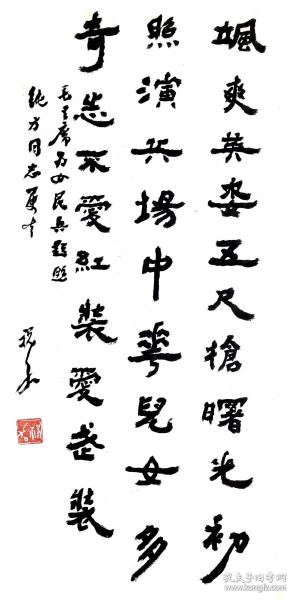 颯爽英姿五尺槍曙光初
照演兵場中華兒女多
奇志不愛紅裝愛武裝
毛主席為女民兵題照
純方同志屬書
孔夫子旧书网
kongfz.com